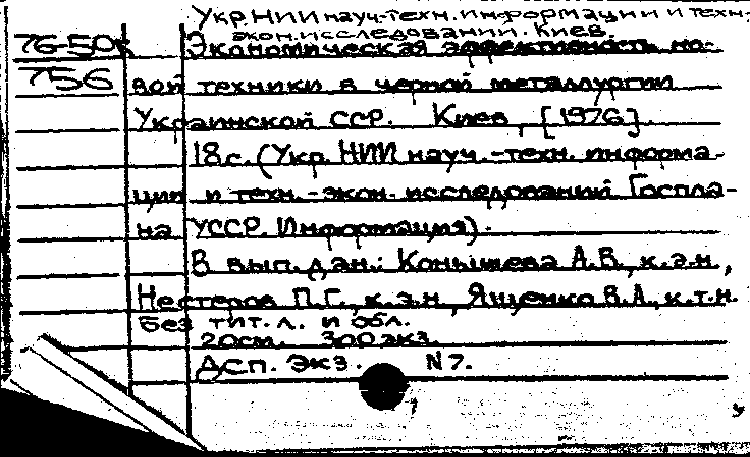 Укр.НИИ науч-техн.информации и техн-
экон.исследовании.Киев.
76-50к Экономическая эффективность но-
756 вой техники в черной металлургии
Украинской ССР. Киев, [1976].
18с. (Укр. НИИ науч.-техн. информа-
ции и техн.-экон. исследований Госпла-
на УССР. Информация).
В вып.дан.: Конышева А.В., к.э.н.,
Нестеров П.Г., к.э.н., Ященко В.А., к.т.н.
Без тит.л. и обл.
20см. 300экз.
ДСП. Экз. N 7.